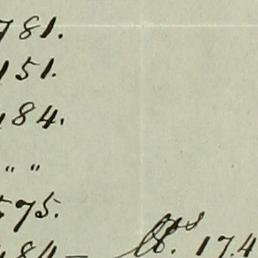 781.
151.
184.
" "
575.
184 — 17.4